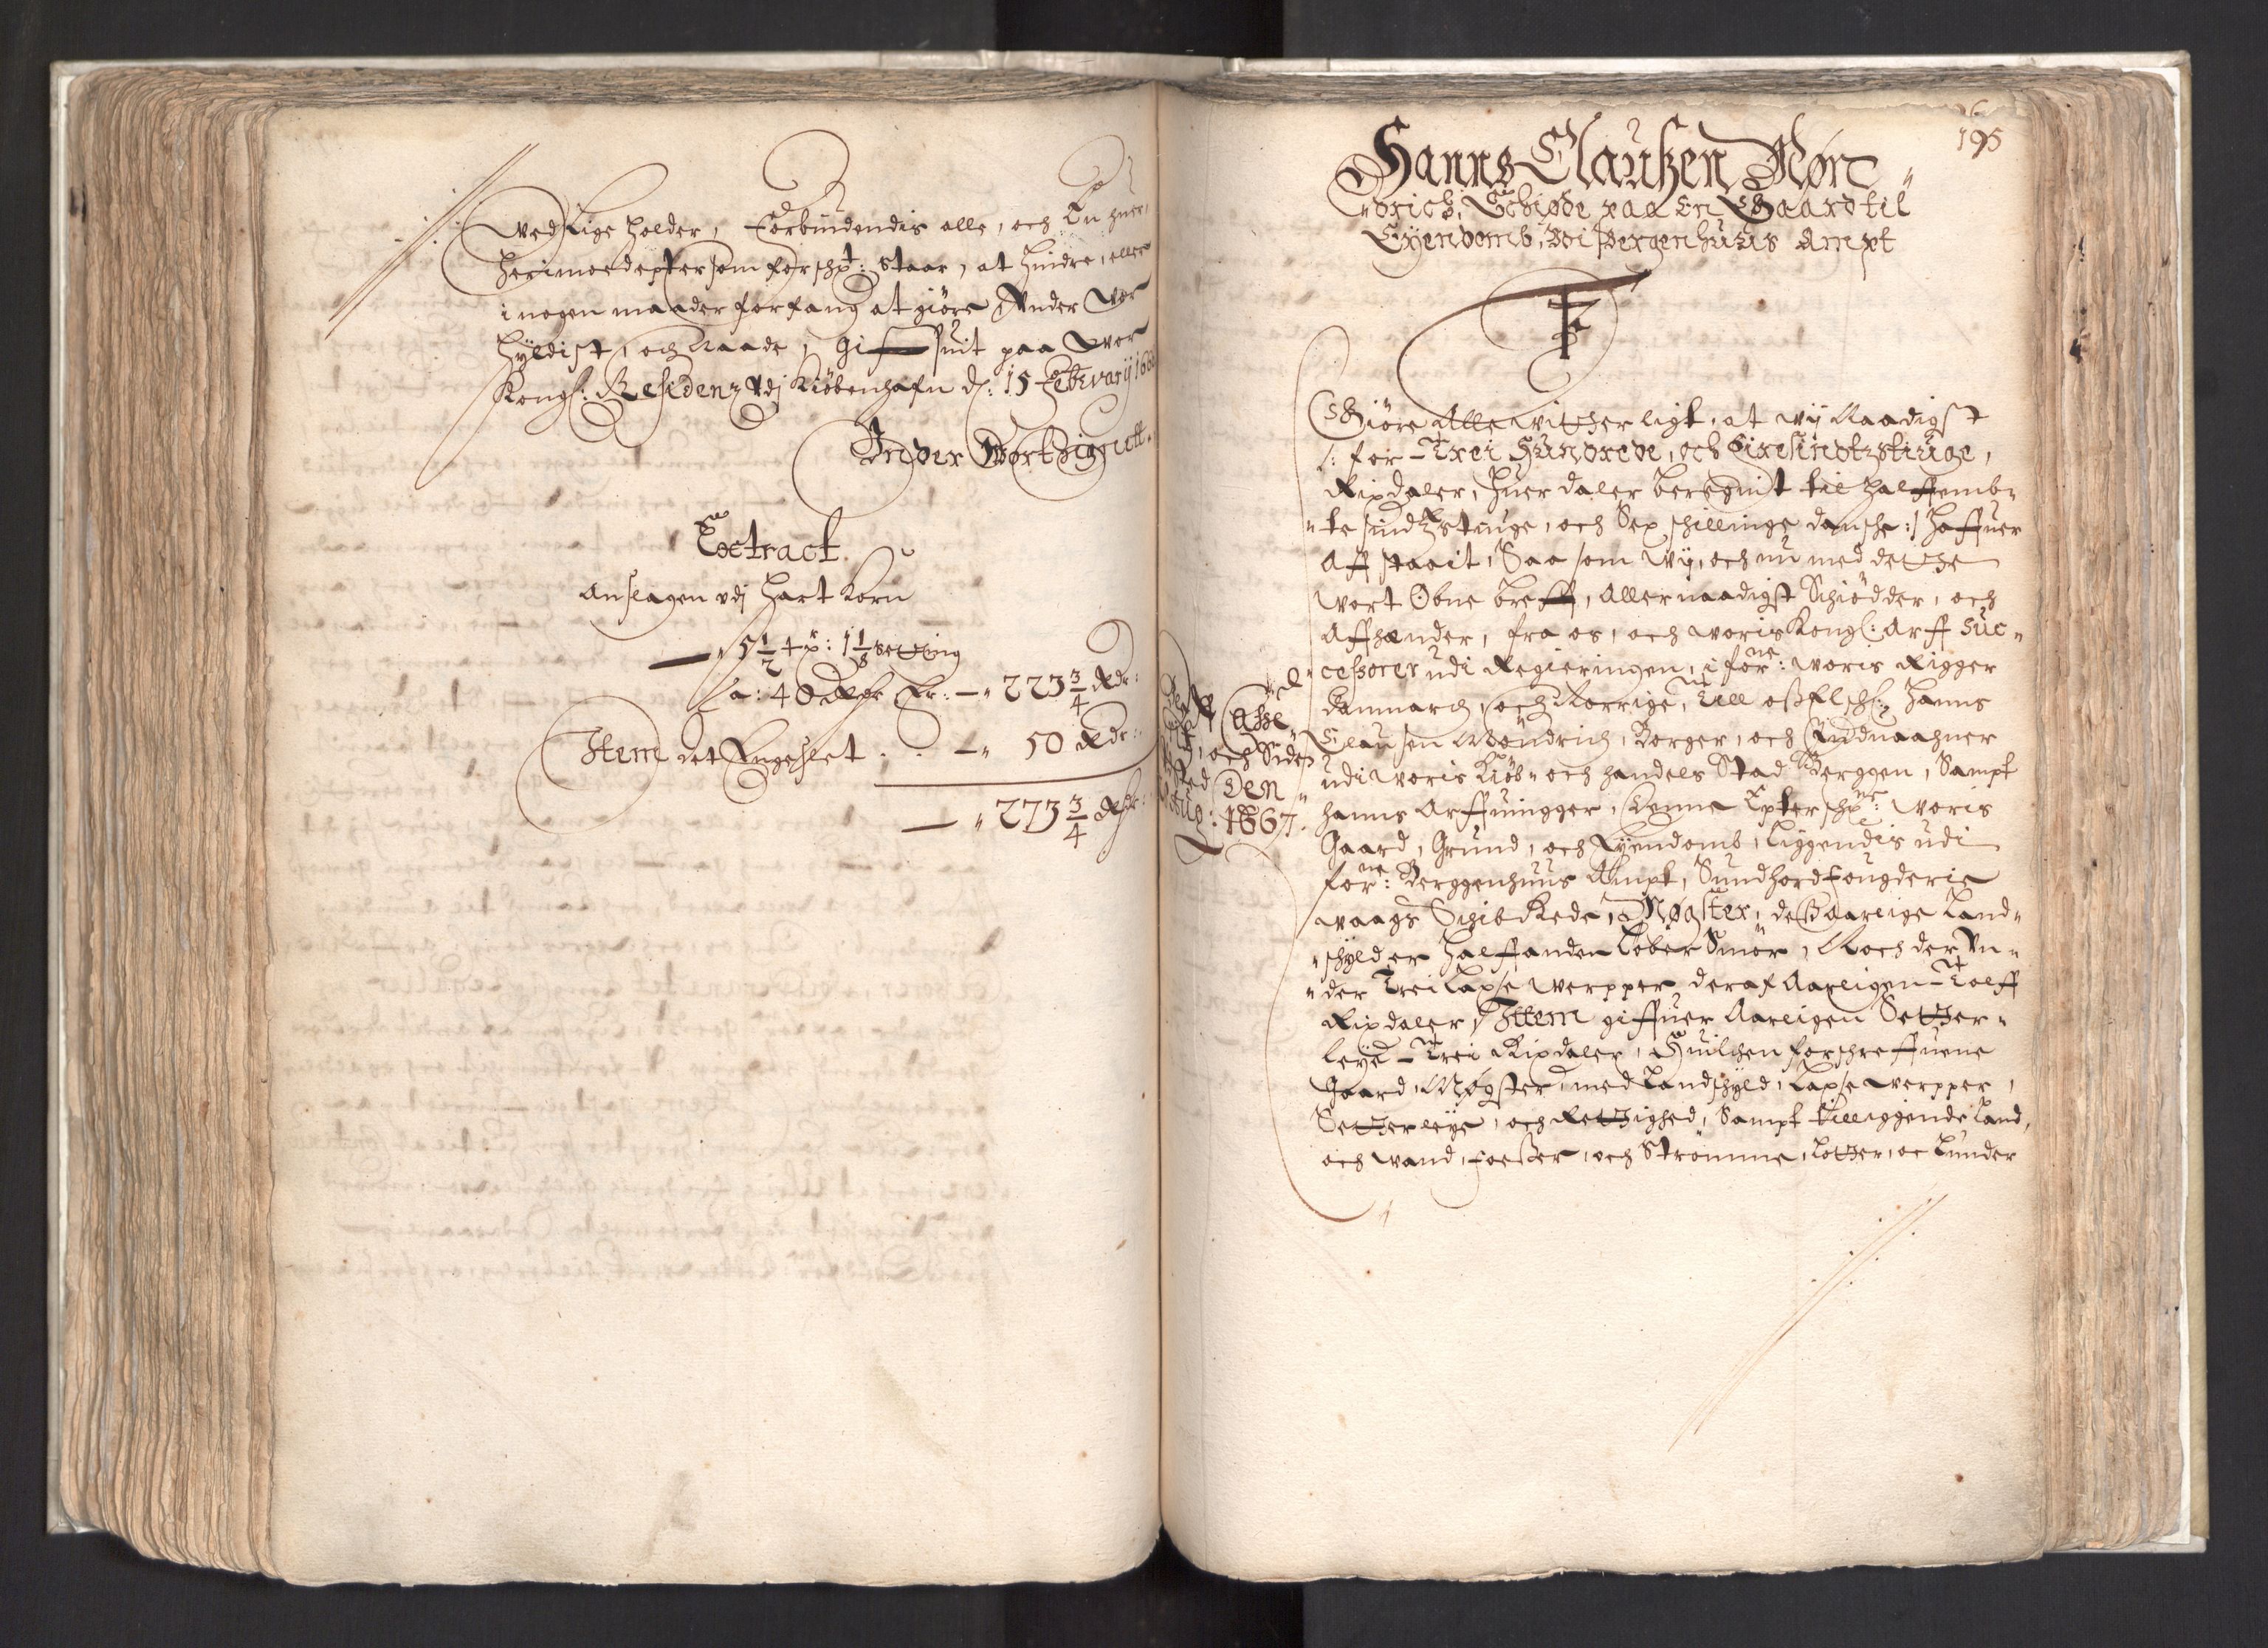 Ved Lige holder, Forbiudendis alle, och En huer,
herimoed efter som forschr.t: staar, at hindre, eller
i nogen maader forfang at giöre Vnder Vor
Hyldist, och Naade, Giffuit paa Vor
Kongl: Residenz Vdj Kiöbenhafn d: 15 Februarij 166
Under Vort Signett.
Extract.
Anslagen vdj Hart Korn
5 1/2 tr: 1 1/8 Setting
a: 40 Rdr Er: — 223 3/4 Rdr:
Item det Engeslet . . — 50 Rdr:
— 273 3/4 Rdr:
195
Hanns Claußen Møn
drich, Schiøde paa En Gaard til
Eyendomb, Vdi Bergenhuus Ampt
Giöre Alle Vitterligt, at Vij Naadigst
/: for Trei Hundrede, och Firesindtztiuge,
Rixdaler, huer daler beregnit til halffemb
te sindtztiuge, och Sex schillinge dansche :/ haffuer
Affstaait, Saa som Vij, och nu med dette
Vort Obne breff, Allernaadigst Schiödder, och
Affhænder, fra os, och Voris Kongl: Arff Suc
cessorer udi Regieringen, i for.ne: Voris Rigger
Danmarch, och Norrige, Till os Elschl: Hanns
Clausen Möndrich, Borger, och Indvaahner
udi Voris Kiöb och Handels Stad Berggen, Sampt
hanns Arffuingger, Denne Epterschr.ne: Voris
Gaard, Grund, och Eyendomb, liggendis udi
for.ne: Berggenhuus Ampt, Sundhord Fougderie
Waags Schibrede, Møgster, des Aarlige Land
schyld er halffanden Løber Smör, Noch der Vn
der Trei Laxe Werpper deraf Aarligen Tolff
Rixdaler, Item giffuer Aarligen Setter
leye Trei Rixdaler, Huilchen forschreffuene
Gaard, Møgster, med Landschyld, Laxe Werpper,
Setterleye, och Rettighed, Sampt tilliggende Land,
och Vand, Foeßer, och Strömme, Lotter, oc Lunder
Casse
och Sides
Den
1667.